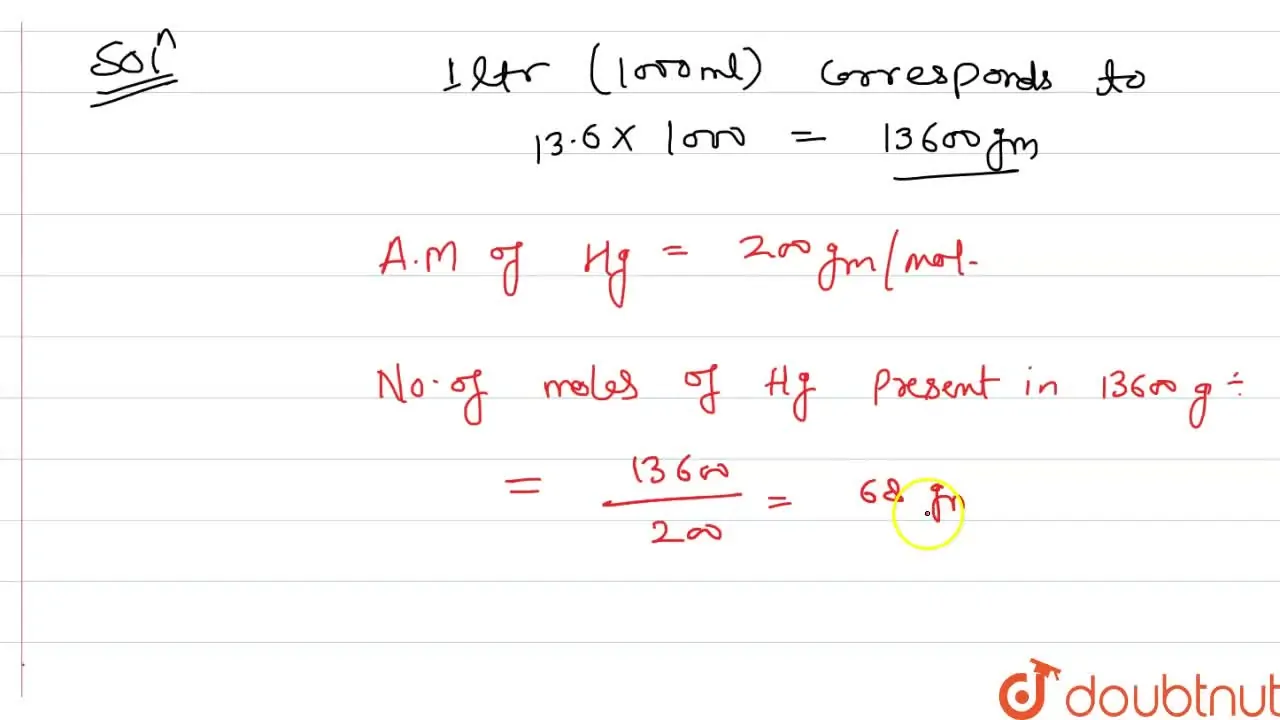 Solⁿ
1 ltr (1000 ml) corresponds to
13.6 × 1000 = 13600 gm
A.M of Hg = 200 gm/mol.
No. of moles of Hg present in 13600 g ÷
= 13600/200 = 68 gm
doubtnut